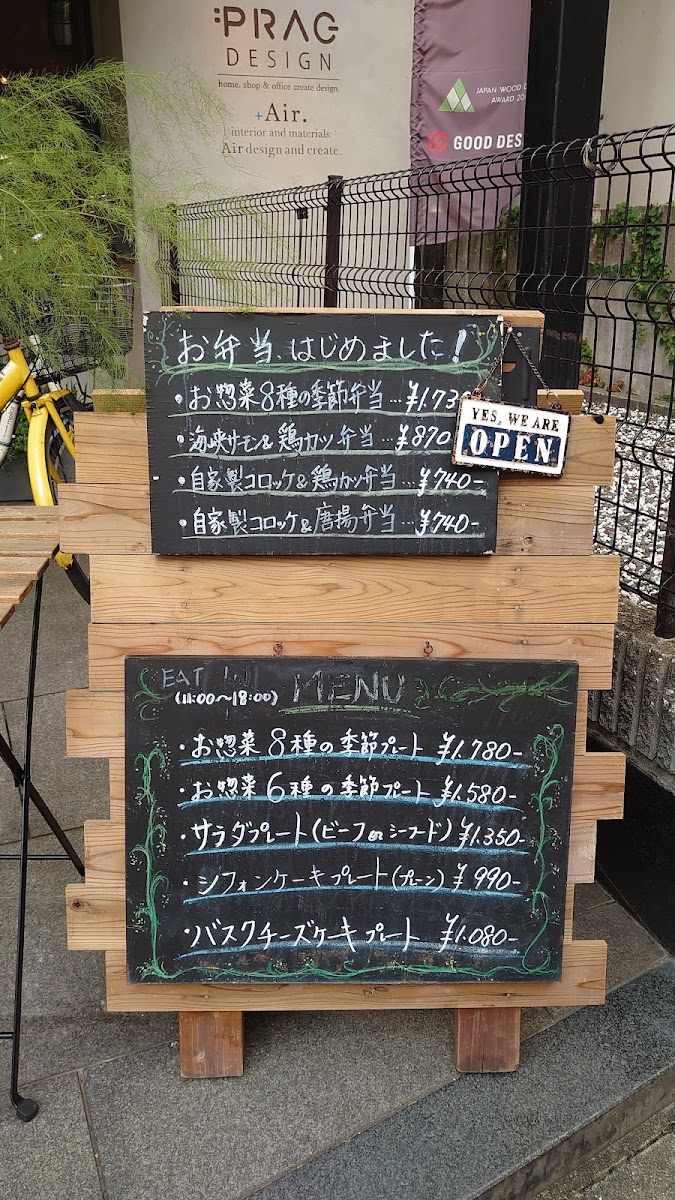 :PRAG
DESIGN
home, shop & office create design.
+Air.
interior and materials:
Air design and create.
JAPAN WOOD
AWARD 20
GOOD DES
お弁当、はじめました!
・お惣菜8種の季節弁当…¥1.73
・海峡サーモン&鶏カツ弁当…¥870
・自家製コロッケ&鶏カツ弁当…¥740-
・自家製コロッケ&唐揚弁当…¥740-
YES, WE ARE
OPEN
EAT IN MENU
(11:00〜18:00)
・お惣菜8種の季節プレート ¥1.780-
・お惣菜6種の季節プレート ¥1.580-
・サラダプレート(ビーフorシーフード) ¥1.350-
・シフォンケーキプレート(プレーン) ¥990-
・バスクチーズケーキプレート ¥1.080-